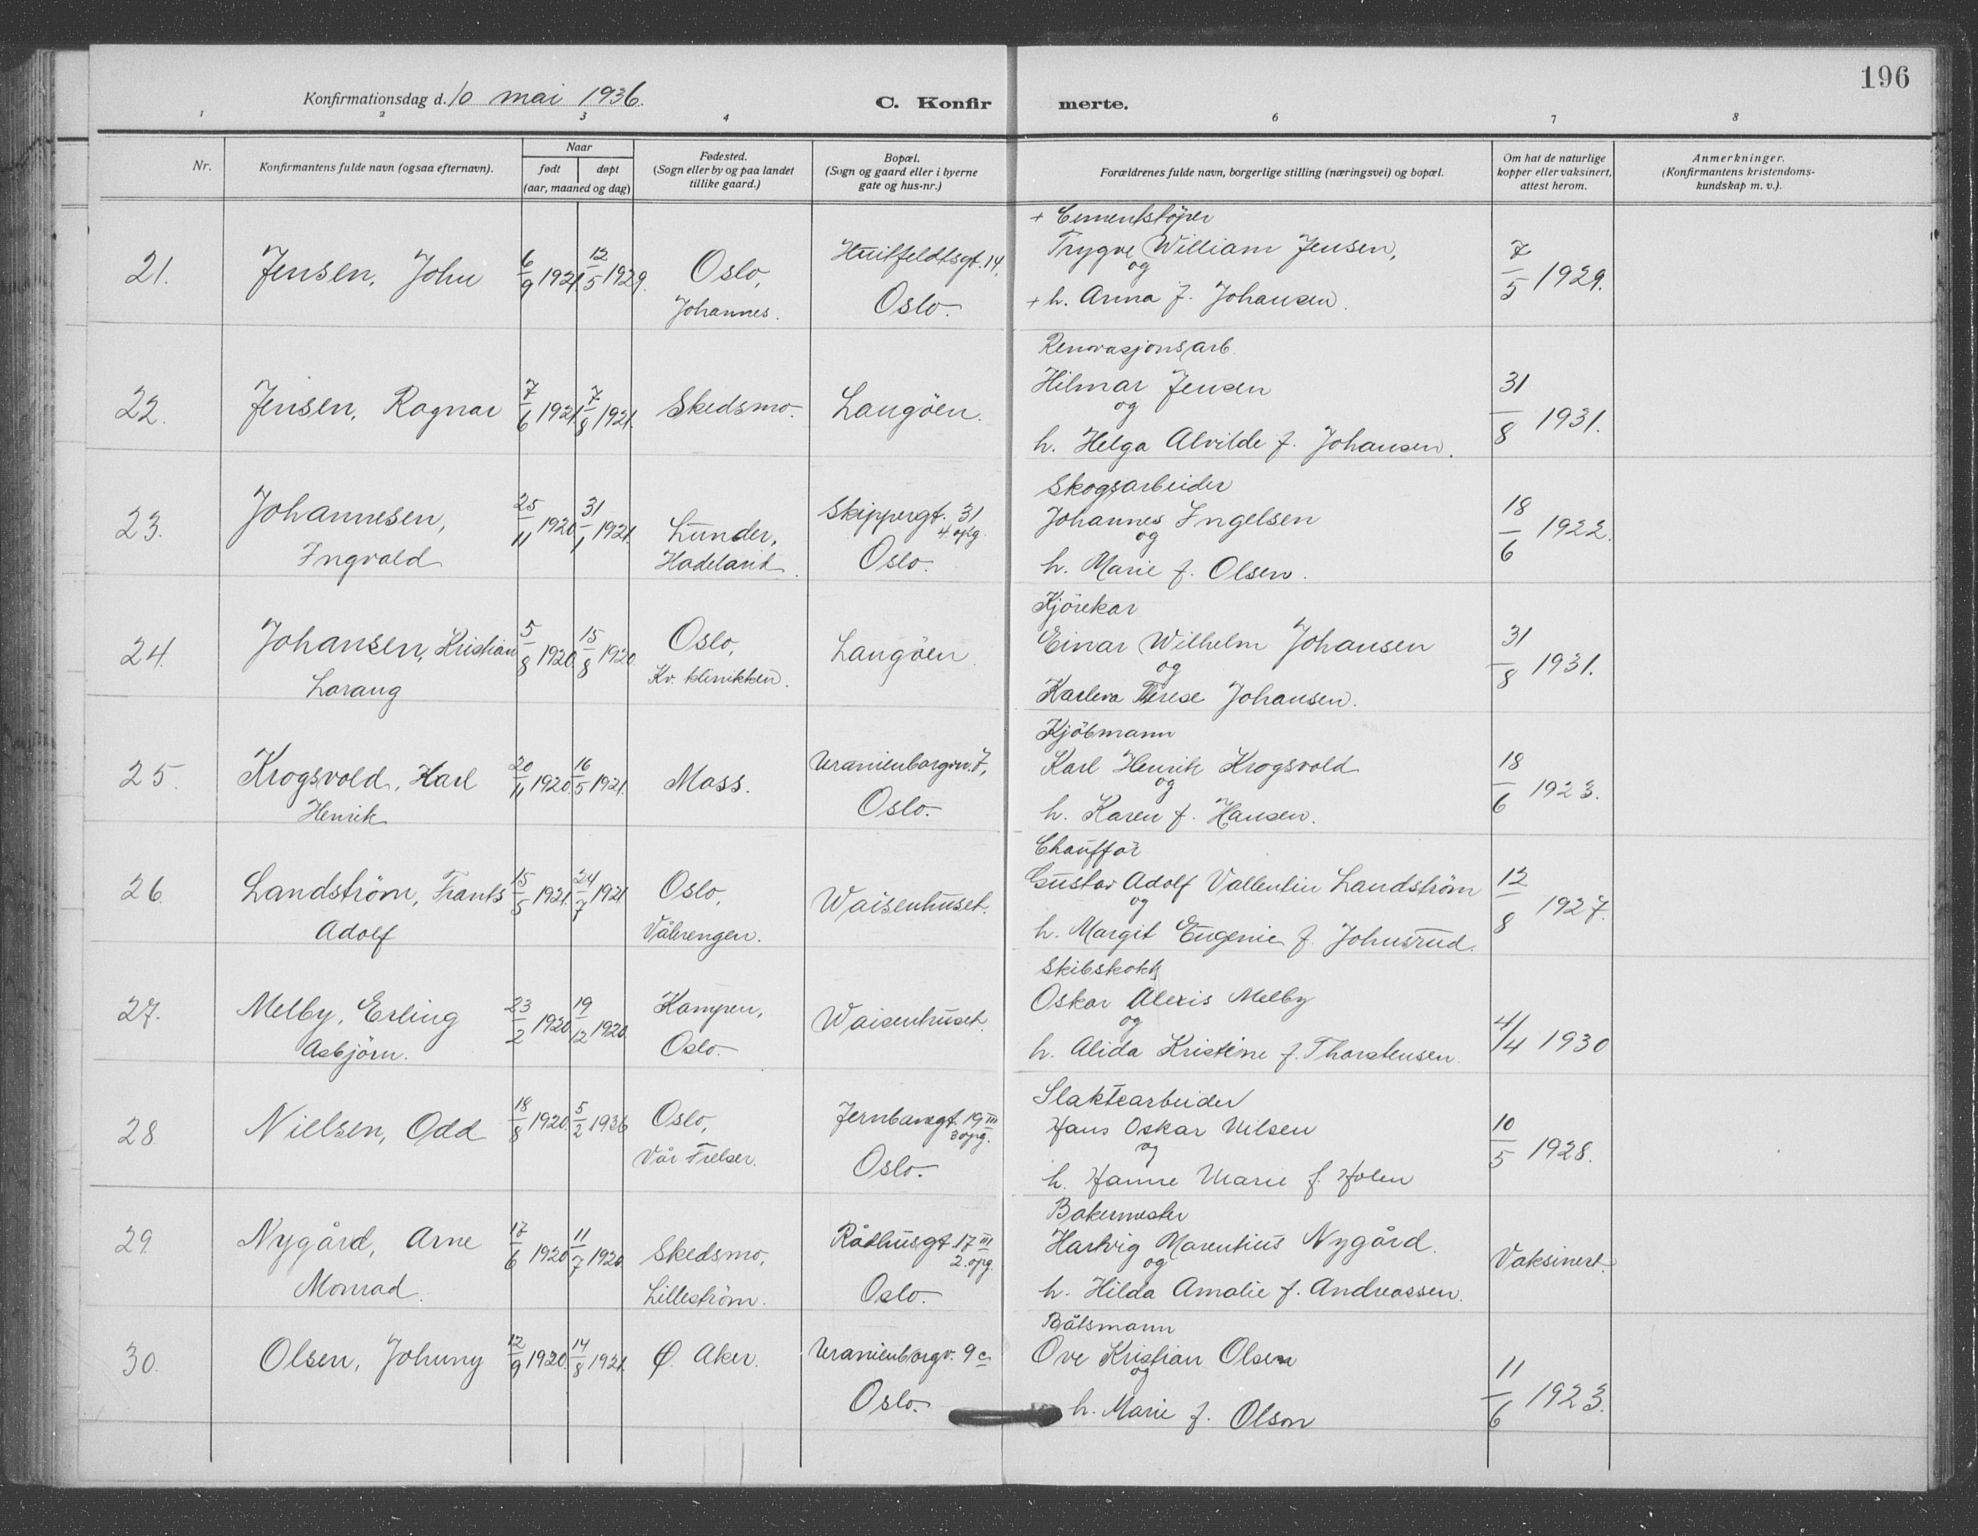 196
Konfirmationsdag d. 10 mai 1936.
C. Konfirmerte.
1 2 3 4 6 7 8
Nr.
Konfirmantens fulde navn (ogsaa efternavn).
Naar
født døpt
(aar, maaned og dag)
Fødested.
(Sogn eller by og paa landet
tillike gaard.)
Bopæl.
(Sogn og gaard eller i byerne
gate og hus-nr.)
Forældrenes fulde navn, borgerlige stilling (næringsvei) og bopæl.
Om hat de naturlige
kopper eller vaksinert,
attest herom.
Anmerkninger.
(Konfirmantens kristendoms-
kundskap m. v.).
21. Jensen, John
6/9 1921. 12/5 1929.
Oslo,
Johannes.
Huitfeldtsgt. 14,
Oslo.
+ Cementstöper
Trygve William Jensen,
og
+ h. Anna f. Johansen.
7/5 1929.
22. Jensen, Ragnar
7/6 1921. 7/8 1921.
Skedsmo.
Langöen.
Renovasjonsarb.
Hilmar Jensen
og
h. Helga Alvilde f. Johansen.
31/8 1931.
23. Johannesen,
Ingvald
25/11 1920 31/1 1921.
Lunder,
Hadeland.
Skippergt. 31
4. opg.
Oslo.
Skogsarbeider
Johannes Ingelsen
og
h. Marie f. Olsen.
18/6 1922.
24. Johansen, Kristian
Lorang
5/8 1920. 15/8 1920.
Oslo,
Kv. klinikken.
Langöen.
Kjörekar
Einar Wilhelm Johansen
og
Karleva Therese Johansen.
31/8 1931.
25. Krogsvold, Karl
Henrik
20/11 1920. 16/5 1921.
Moss.
Uranienborgvn. 7,
Oslo.
Kjöbmann
Karl Henrik Krogsvold
og
h. Karen f. Hansen.
18/6 1923.
26. Landström, Frants
Adolf
15/5 1921. 24/7 1921
Oslo,
Vålerengen.
Waisenhuset.
Chauffør
Gustav Adolf Vallentin Landström
og
h. Margit Eugenie f. Johnsrud.
12/8 1927.
27. Melby, Erling
Asbjörn.
23/2 1920. 19/12 1920.
Kampen,
Oslo.
Waisenhuset.
Skibskokk
Oskar Alexis Melby
og
h. Alida Kristine f. Thorstensen.
4/4 1930
28 Nielsen, Odd
18/8 1920. 5/2 1936
Oslo,
Vår Frelser.
Jernbanegt. 19 III
3 opg.
Oslo.
Slaktearbeider
Hans Oskar Nilsen
og
h. Hanne Marie f. Holen
10/5 1928.
29. Nygård, Arne
Monrad.
17/6 1920 11/7 1920.
Skedsmo,
Lilleström.
Rådhusgt. 17 III
2. opg.
Oslo.
Bakermester
Hartvig Marentius Nygård.
og
h. Hilda Amalie f. Andreassen.
Vaksinert.
30. Olsen, Johnny
12/9 1920. 14/8 1921.
Ø. Aker.
Uranienborgv. 9 c
Oslo.
Båtsmann
Ove Kristian Olsen
og
h. Marie f. Olson
11/6 1923.